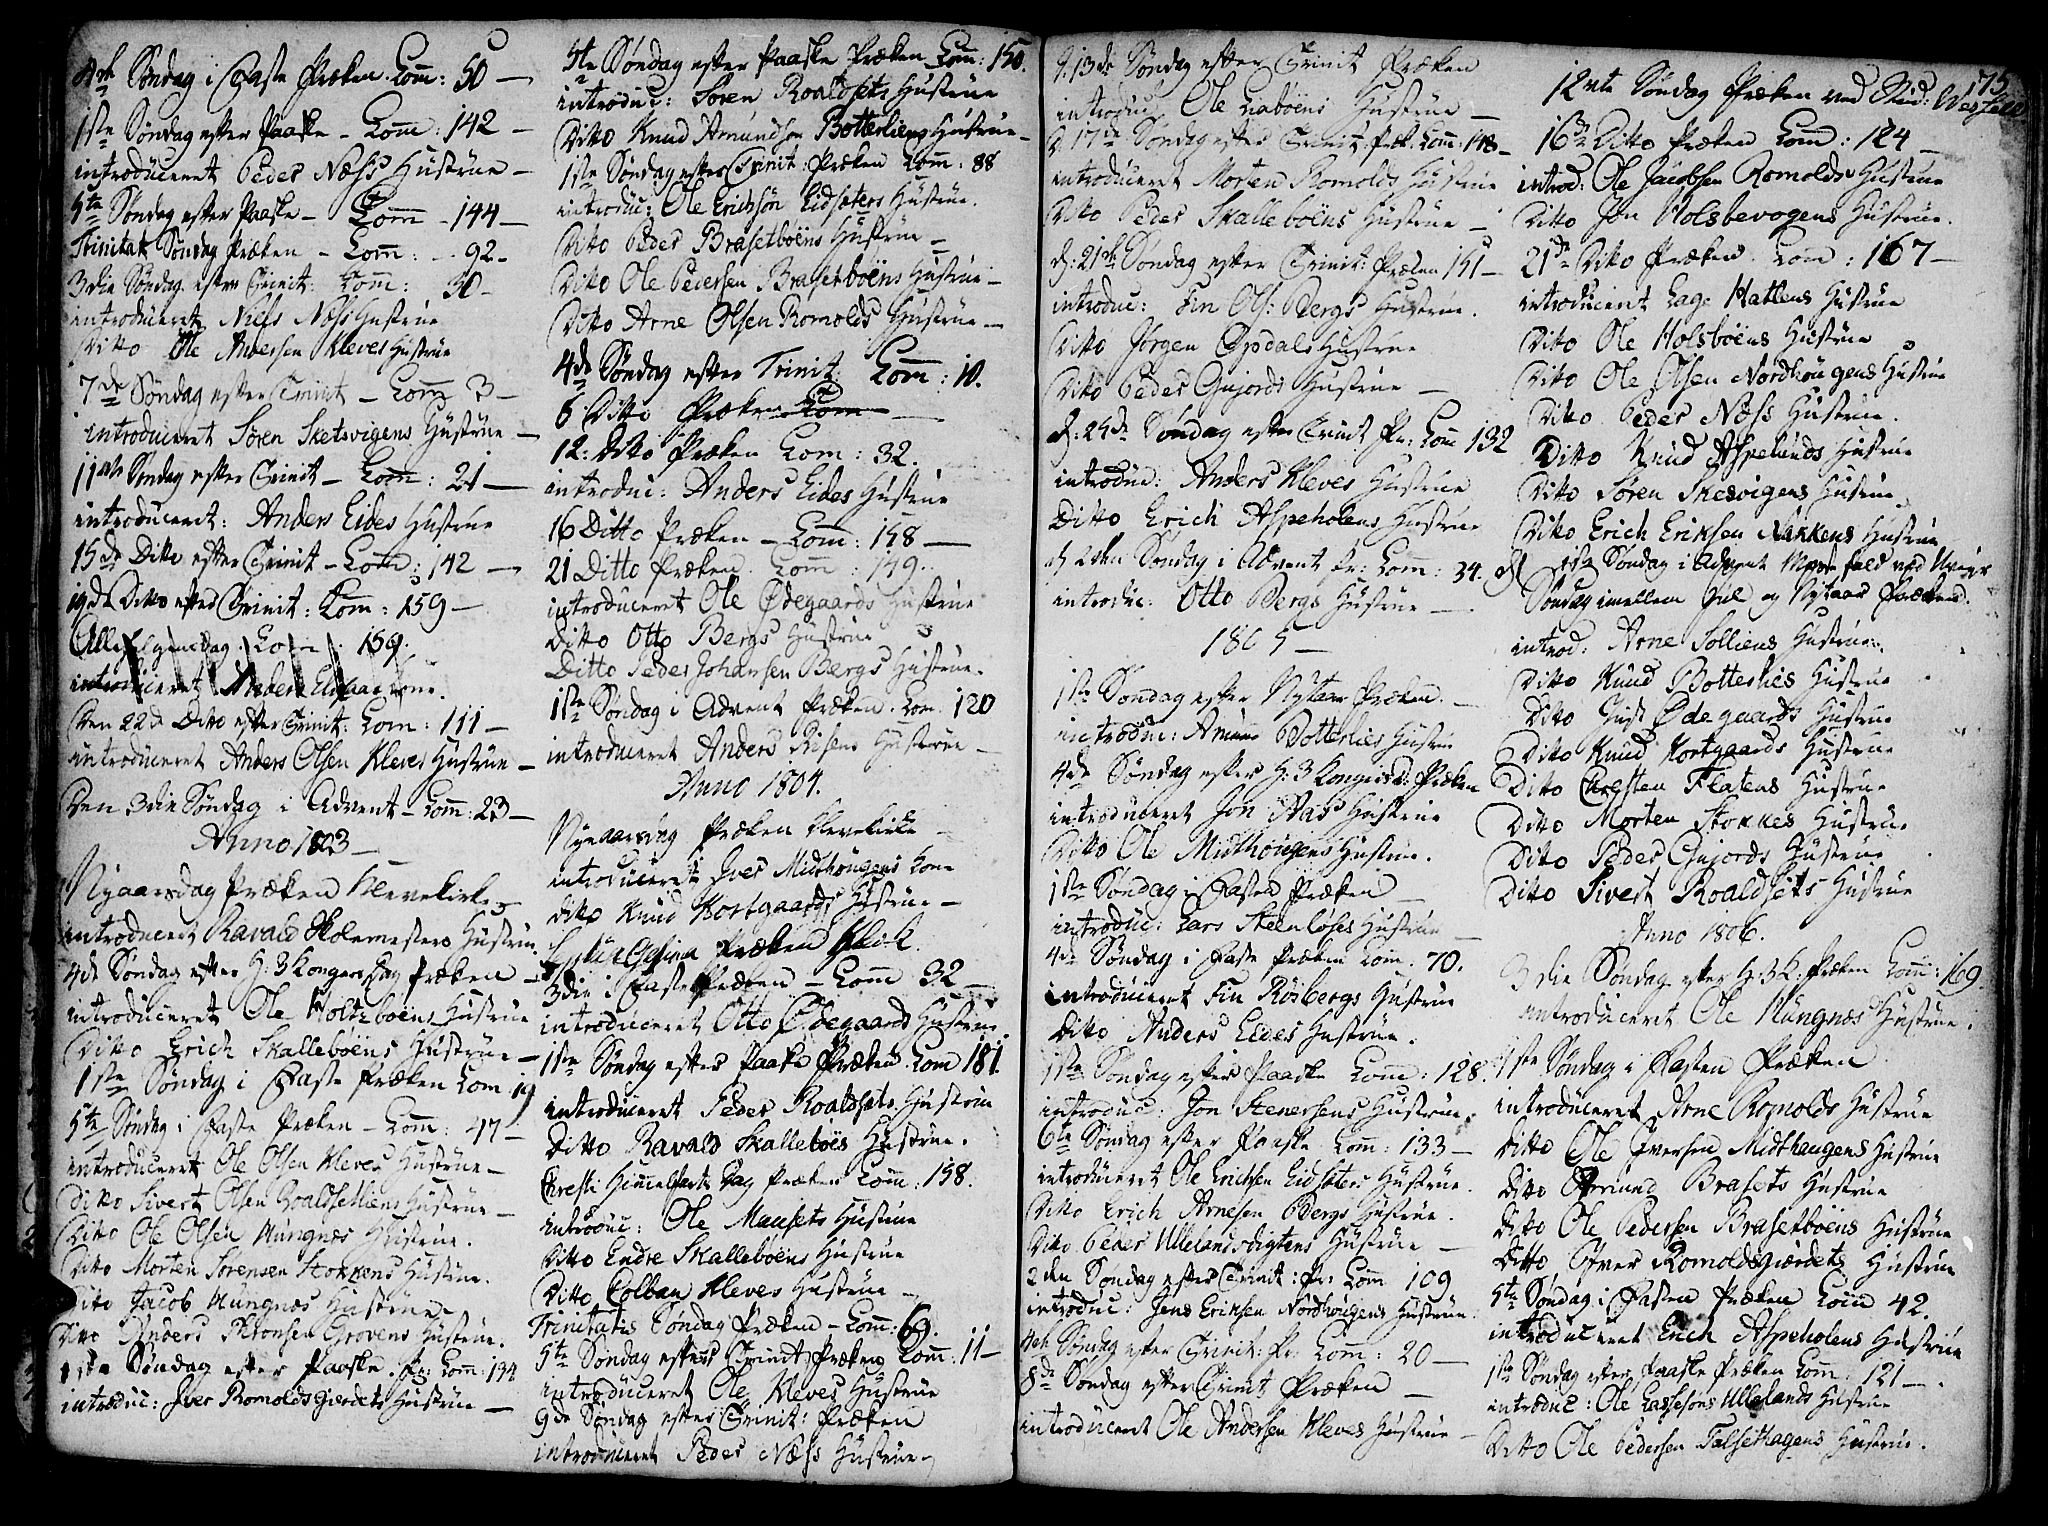 4de Søndag i Faste Præken. Com: 50 —
1ste Søndag efter Paaske — Com: 142 —
introduceret Peder Næss Hustrue —
5te Søndag efter Paaske — Com — 144 —
Trinitat Søndag Præken — Com: — 92 —
3die Søndag efter Trinit: Com: 30 —
introduceret Niels Næss Hustrue
Ditto Ole Andersen Kleves Hustrue
7de Søndag efter Trinit — Com 3 —
introduceret Søren Sketsvigens Hustrue —
11te Søndag efter Trinit — Com: 21 —
introduceret: Anders Eides Hustrue
15de Ditto efter Trinit — Com: 142 —
19de Ditto efter Trinit: Com: 159 —
Allehelgensdag. Com: 159.
introduceret Anders
Den 22de Ditto efter Trinit: Com: 111 —
introduceret Anders Olsen Kleves Hustrue —
Den 3die Søndag i Advent — Com: 23 —
Anno 1803 —
Nyaarsdag Præken Klevekirke
introduceret Ravald Holemesters Hustrue
4de Søndag efter H: 3 Konger Dag Præken —
introduceret Ole Holtzboens Hustrue
Ditto Erich Skalleboens Hustrue —
1ste Søndag i Faste Præken Com: 19
5te Søndag i Faste Præken — Com: 47 —
introduceret Ole Olsen Kleves Hustrue —
Ditto Sivert Olsen Roaldsetliens Hustrue —
Ditto Ole Olsen Hungnæs Hustrue.
Ditto Morten Sørensen Stokkens Hustrue.
Dito Jacob Hungnæs Hustrue
Ditto Anders Grovens Hustrue.
1ste Søndag efter Paaske. Pr: Com: 134
introduc: Iver Romoldsgjerdets Hustrue —
5te Søndag efter Paaske Præken Com: 150.
introduc: Søren Roaldsets Hustrue
Ditto Knud Amundsen Botterliens Hustrue —
1ste Søndag efter Trinit: Præken Com: 88
introduc: Ole Erichsøn Eidsæters Hustrue.
Ditto Peder Brasetboens Hustrue —
Ditto Ole Pedersen Brasetboens Hustrue —
Ditto Arne Olsen Romolds Hustrue —
4de Søndag efter Trinit. Com: 10.
6 Ditto Præken Com —
12: Ditto Præken Com: 32.
introduc: Anders Eides Hustrue
16 Ditto Præken — Com: 158 —
21 Ditto Præken. Com: 149.
introduceret Ole Ødegaards Hustrue
Ditto Otto Bergs Hustrue
Ditto Peder Johansen Bergs Hustrue.
1ste Søndag i Advent Præken. Com. 120
introduceret Anders Risens Hustrue —
Anno 1804.
Nyeaarsdag Præken Klevekirke —
introduceret Iver Midthougens Kone
ditto Knud Kortgaards Hustrue —
Septuagesima Præken Klev: K.
3die i Faste Præken — Com 32 —
introduceret Otto Ødegaard Hustrue
1ste Søndag efter Paaske Præken Com 181.
introduceret Peder Roaldsets Hustrue
Ditto Ravald Skalleboes Hustrue.
Christi Himmelfarts Dag Præken Com: 158.
introduc: Ole Mausets Hustrue
Ditto Endre Skalleboens Hustrue
Ditto Colban Kleves Hustrue —
Trinitatis Søndag Præken — Com: 69.
5te Søndag efter Trinit: Præken Com: 11 —
introduceret Ole Kleves Hustrue
9de Søndag efter Trinit: Præken
introduceret Peder Næss Hustrue
d. 13de Søndag efter Trinit Præken
introduc: Ole Naboens Hustrue —
d. 17de Søndag efter Trinit Præk. Com: 148 —
introduceret Morten Romolds Hustrue
Ditto Peder Skalleboens Hustrue —
d: 21de Søndag efter Trinit: Præken 151 —
introduc: Fin Ols: Bergs Hustrue.
Ditto Jørgen Opdals Hustrue
Ditto Peder Gujords Hustrue —
d: 25de Søndag efter Trinit Pr: Com 132
introduc: Anders Kleves Hustrue
Ditto Erich Aspeholens Hustrue
d 2den Søndag i Advent Pr: Com: 34.
introduc: Otto Bergs Hustrue —
1805 —
1ste Søndag efter Nytaar Præken. —
introduc: Amund Botterlies Hustrue
4de Søndag efter H: 3 Kongersd: Præken
introduceret Jon Aas Hustrue
Ditto Ole Midthougens Hustrue.
1ste Søndag i Fasten Præken —
introduc: Lars Steenløses Hustrue —
4de Søndag i Faste Præken Com: 70.
introduceret Fin Rósbergs Hustrue
Ditto Anders Eides Hustrue.
1ste Søndag efter Paaske Com: 128.
introduc: Jon Stenersens Hustrue.
6te Søndag efter Paaske Com: 133 —
introduceret Ole Erichsen Eidsæters Hustrue.
Ditto Erich Arnesen Bergs Hustrue.
Ditto Peder Ullelandsvigtens Hustrue —
2den Søndag efter Trinit: Pr: Com 109
introduc: Jens Eriksen Nordhougens Hustrue.
4de Søndag efter Trinit: Pr: Com: 20 —
8de Søndag efter Trinit Præken —
introduceret Ole Andersen Kleves Hustrue —
175
12te Søndag Præken ved Stud: Wesfeldt
16de Ditto Præken Com: 124 —
introd: Ole Jacobsen Romolds Hustrue
Ditto Jon Holsbevogens Hustrue.
21de Ditto Præken. Com: 167 —
introduceret Lage Hatlens Hustrue
Ditto Ole Holsboens Hustrue
Ditto Ole Olsen Nordhougens Hustrue
Ditto Peder Næss Hustrue.
Ditto Knud Aspelunds Hustrue
Ditto Søren Skesvigens Hustrue
Ditto Erich Eriksen Nakkens Hustrue
d 1ste Søndag i Advent Messefald ved Uveir
Søndag imellem Jul og Nytaar Præken.
introd. Arne Solliens Hustrue.
Ditto Knud Botterlies Hustrue
Ditto Ødegaards Hustrue
Ditto Knud Kortgaards Hustrue
Ditto Chresten Flatens Hustrue
Ditto Morten Stokkes Hustrue
Ditto Peder Gujords Hustrue
Ditto Sivert Roaldsets Hustrue
Anno 1806.
3die Søndag efter H: 3 K: Præken Com: 169.
introduceret Ole Hungnæs Hustrue.
1ste Søndag i Fasten Præken
introduceret Arne Romolds Hustrue
Ditto Ole Iversen Midthaugens Hustrue
Ditto Osmund Brasets Hustrue
Ditto Ole Pedersen Brasetboens Hustrue
Ditto Iver Romoldsgjærdets Hustrue
5te Søndag i Fasten Præken Com 42.
introduceret Erich Aspeholens Hustrue
1ste Søndag efter Paaske Præken Com: 121 —
introduc: Ole Lassesøns Ullelands Hustrue
Ditto Ole Pedersen Talsethagens Hustrue.